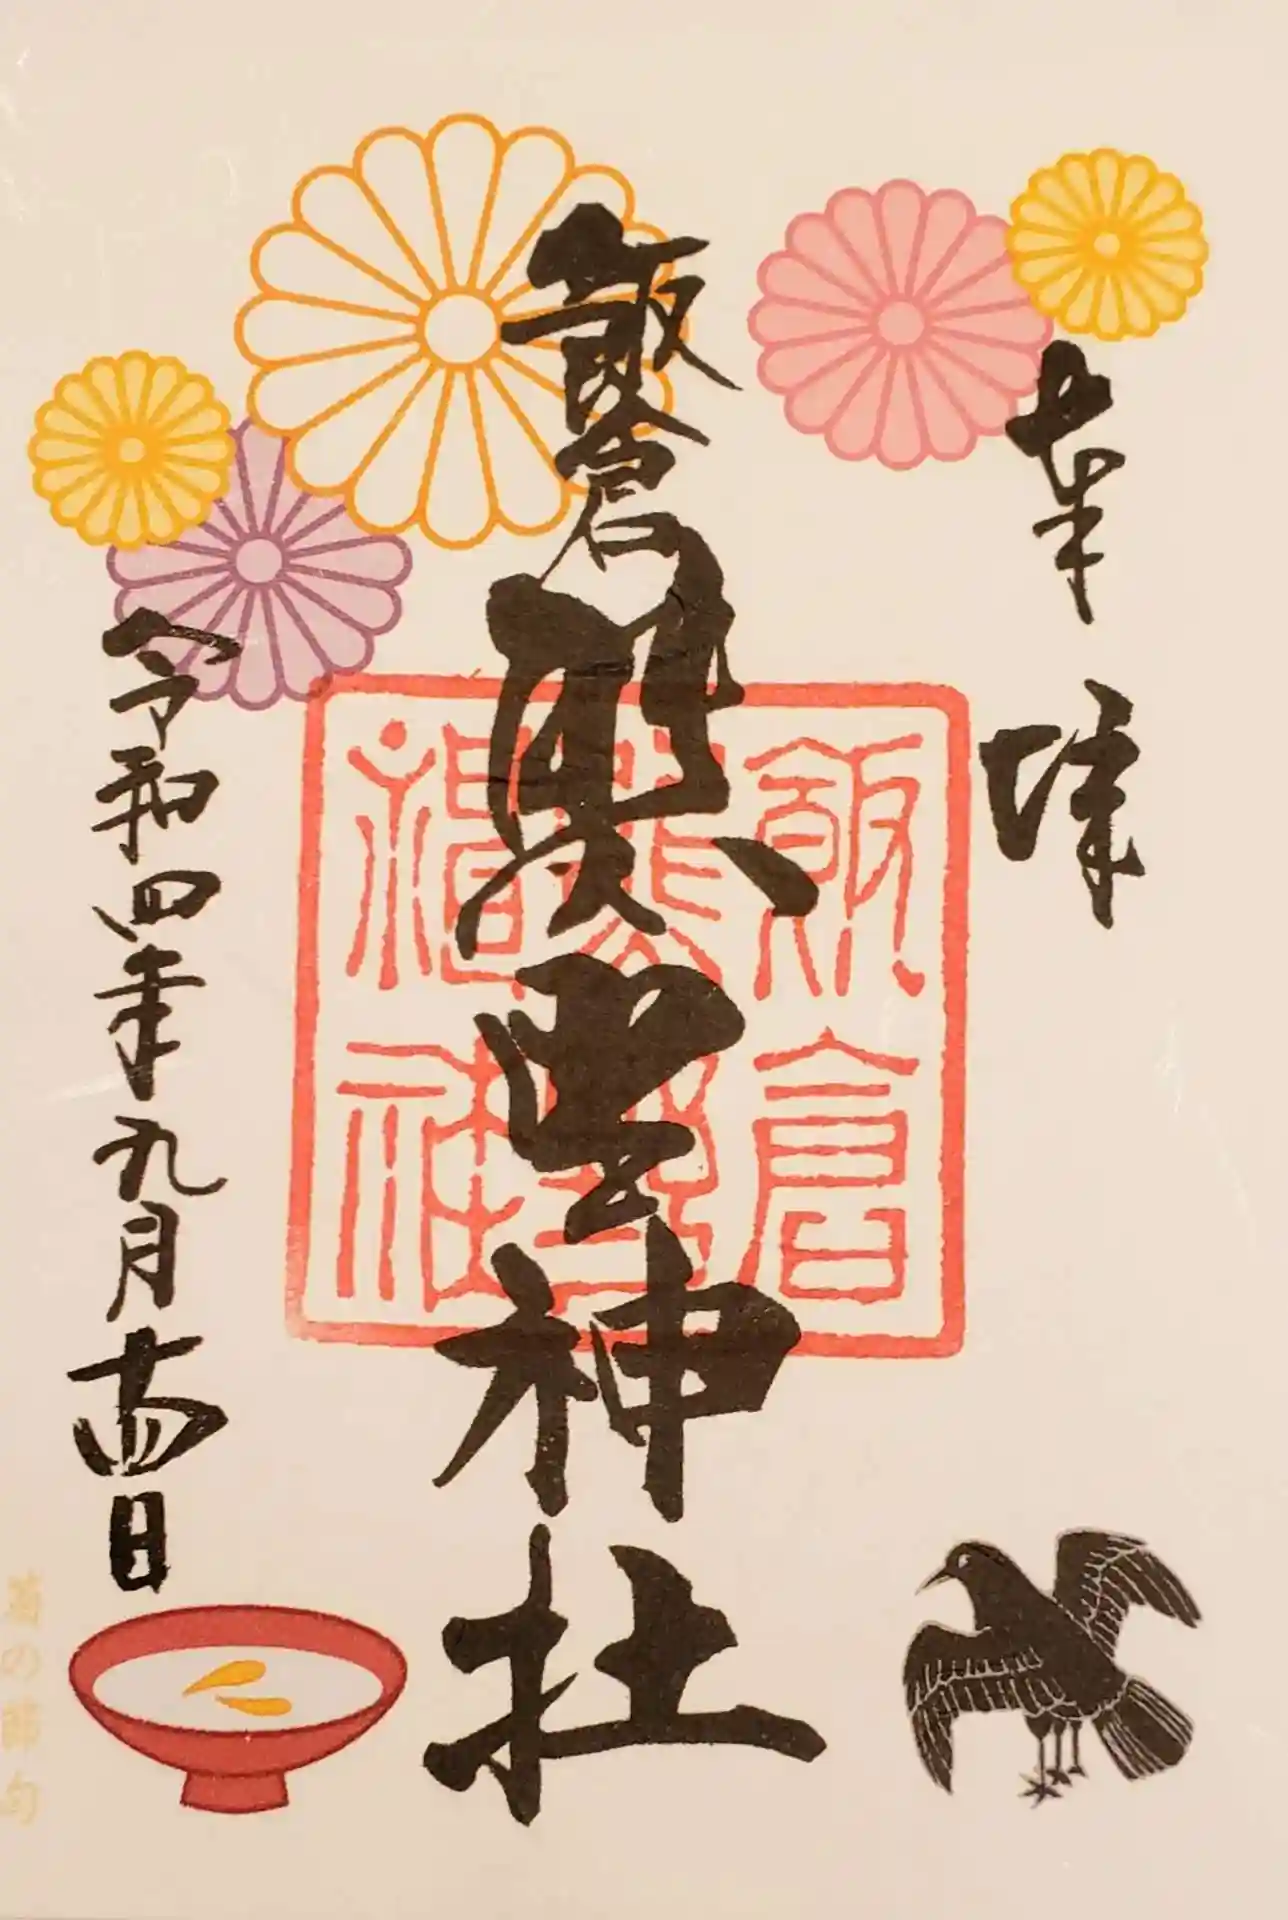 奉拝
飯倉
熊野神社
飯倉
熊野
神社
令和四年九月十四日
菊の節句